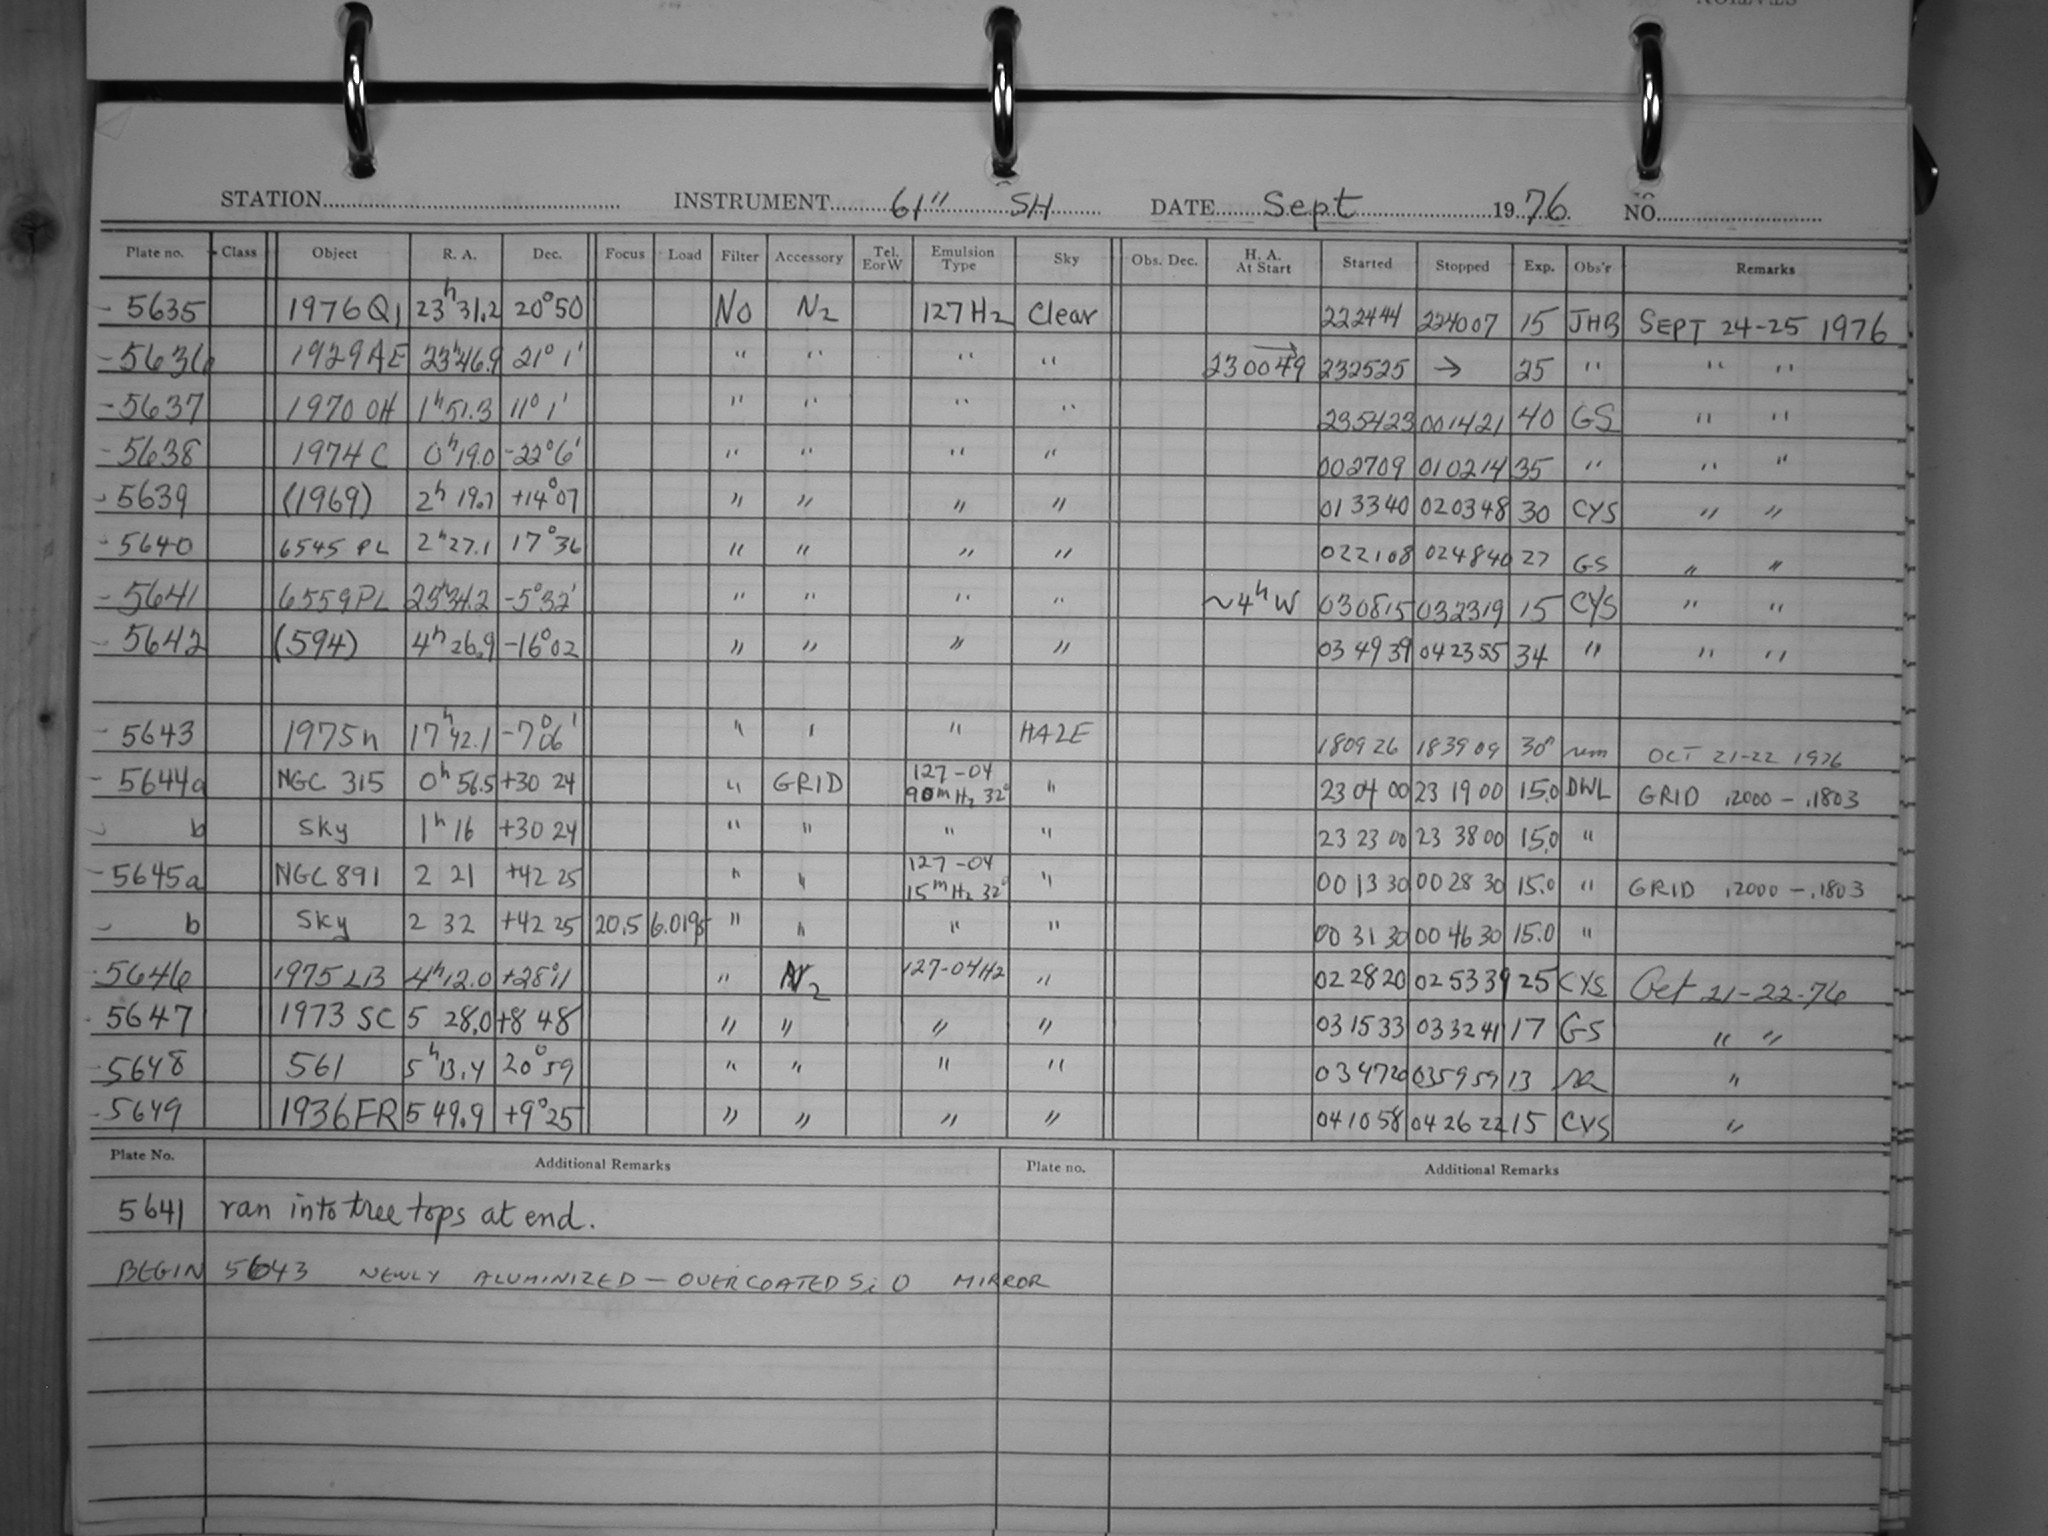 STATION INSTRUMENT 61" SH DATE Sept 1976 NO
Plate no. Class Object R. A. Dec. Focus Load Filter Accessory Tel. E or W Emulsion Type Sky Obs. Dec. H. A. At Start Started Stopped Exp. Obs'r Remarks
5635 1976 Q1 23h 31.2 20° 50 No N2 127 H2 Clear 222444 224007 15 JHB SEPT 24-25 1976
5636 1929 AE 23h 46.9 21° 1' " " " " 230049 → 232525 → 25 " " "
5637 1970 OH 1h 51.3 11° 1' " " " " 235423 001421 40 GS " "
5638 1974 C 0h 19.0 -22° 6' " " " " 002709 010214 35 " " "
5639 (1969) 2h 19.7 +14° 07 " " " " 013340 020348 30 CYS " "
5640 6545 PL 2h 27.1 17° 36 " " " " 022108 024840 27 GS " "
5641 6559 PL 23h 34.2 -5° 32' " " " " ~4h W 030815 032319 15 CYS " "
5642 (594) 4h 26.9 -16° 02 " " " " 034939 042355 34 " " "
5643 1975n 17h 42.1 -7° 06' " " " HAZE 180926 183909 30 OCT 21-22 1976
5644a NGC 315 0h 56.5 +30 24 " GRID 127-04 90m H2 32° " 23 04 00 23 19 00 15.0 DWL GRID .2000 - .1803
b Sky 1h 16 +30 24 " " " " 23 23 00 23 38 00 15.0 "
5645a NGC 891 2 21 +42 25 " " 127-04 15m H2 32° " 00 13 30 00 28 30 15.0 " GRID .2000 - .1803
b Sky 2 32 +42 25 20.5 " " " " 00 31 30 00 46 30 15.0 "
5646 1975 LB 4h 12.0 +28° 11 " N2 127-04 H2 " 022820 025339 25 CYS Oct 21-22-76
5647 1973 SC 5 28.0 +8 48 " " " " 031533 033241 17 GS " "
5648 561 5h 13.4 20° 59 " " " " 034720 035959 13 "
5649 1936 FR 5 49.9 +9° 25 " " " " 041058 042622 15 CYS "
Plate No. Additional Remarks Plate no. Additional Remarks
5641 ran into tree tops at end.
BEGIN 5643 NEWLY ALUMINIZED - OVERCOATED SiO MIRROR